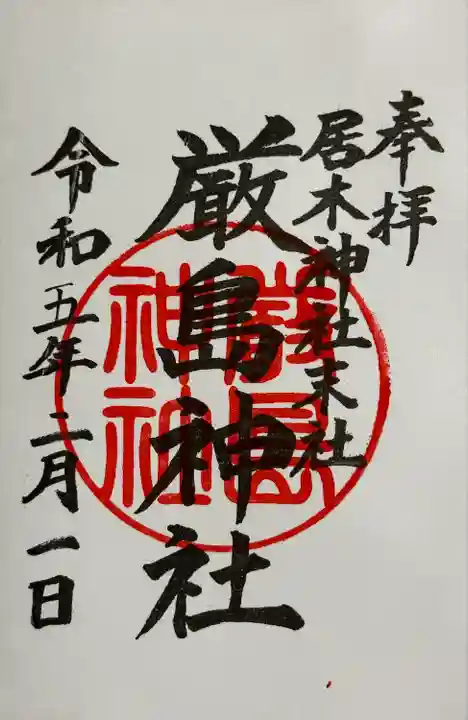 奉拝
居木神社末社
厳島神社
令和五年二月一日
嚴島
神社